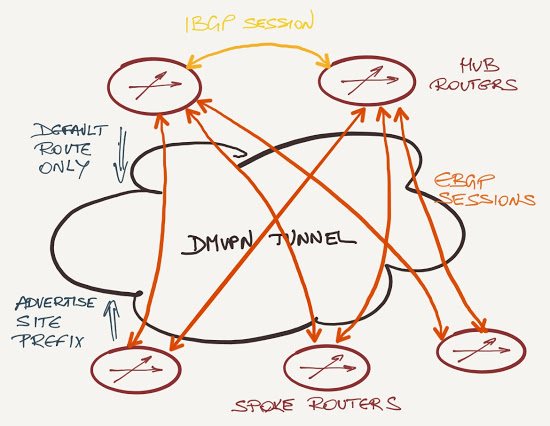 IBGP SESSION
HUB
ROUTERS
DEFAULT
ROUTE
ONLY
EBGP
SESSIONS
DMVPN TUNNEL
ADVERTISE
SITE
PREFIX
SPOKE ROUTERS